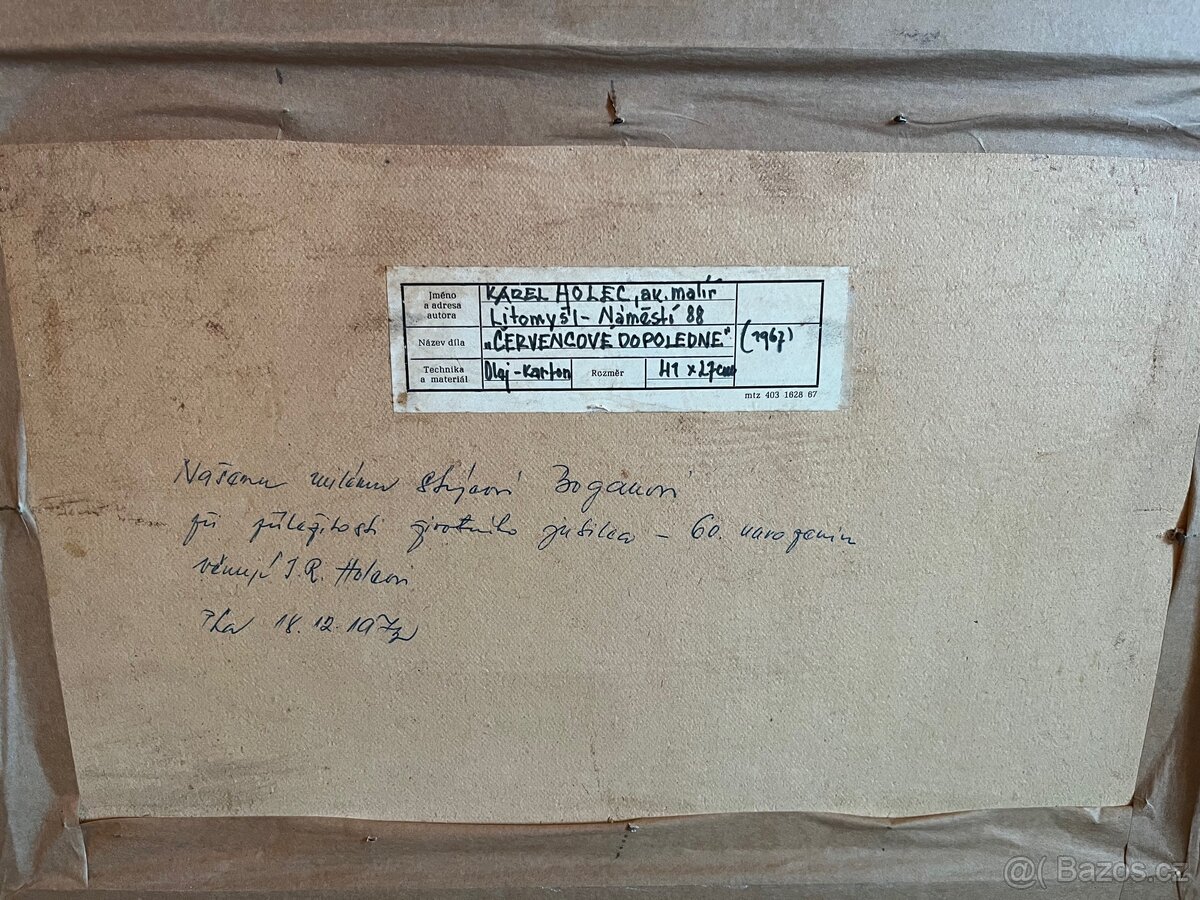 Jméno
a adresa
autora
KAREL HOLEC, ak. malíř
Litomyšl - Náměstí 88
Název díla
„ČERVENCOVÉ DOPOLEDNE" (1967)
Technika
a materiál
Olej - Karton
Rozměr
41 x 27 cm
mtz 403 1628 67
Našemu milému strýcovi
při příležitosti životního jubilea - 60. narozenin
věnují J. R. Holcovi
18. 12.
@( Bazos.cz